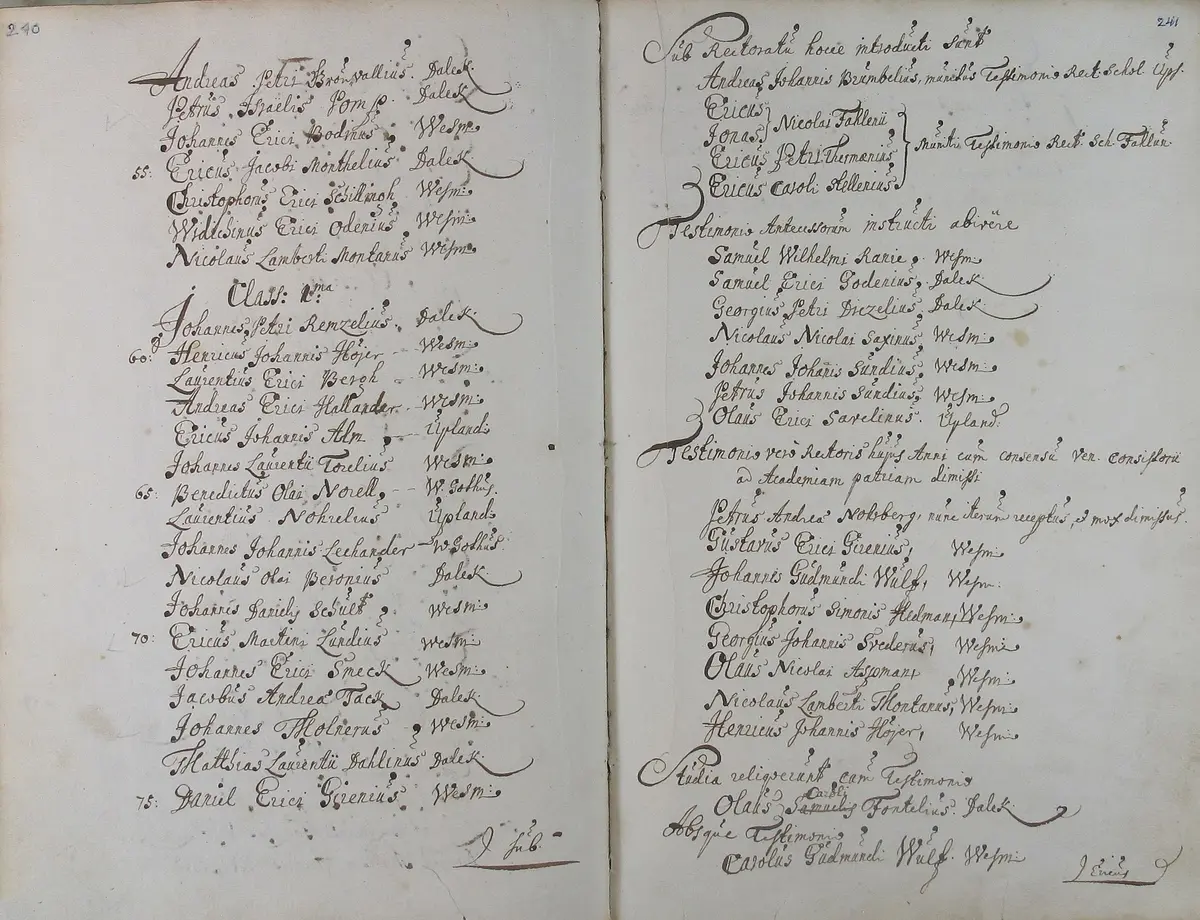 240
Andreas Petri Bronvallius. Dalek.
Petrus Israelis Pomp. Dalek.
Johannes Erici Bodinus, Wesm:
55: Ericus Jacobi Monthelius Dalek
Christophorus Erici Schillingh Wesm:
Widichinus Erici Odenius, Wesm:
Nicolaus Lamberti Montanus Wesm:
Class: 1.ma
Johannes Petri Remzelius. Dalek.
60: Henricus Johannis Höjer -- Wesm:
Laurentius Erici Bergh -- Wesm:
Andreas Erici Hallander -- Wesm:
Ericus Johannis Alm, -- Upland:
Johannes Laurentii Torelius Wesm:
65: Benedictus Olai Norell, -- W.Gothus.
Laurentius Nohrelius Upland:
Johannes Johannis Lechander - W.Gothus.
Nicolaus Olai Beronius Dalek.
Johannes Danielis Schult, Wesm:
70: Ericus Martini Lundius Wesm:
Johannes Erici Smeck Wesm:
Jacobus Andreæ Tack Dalek:
Johannes Molnerus -, Wesm:
Matthias Laurentii Dahlinus Dalek:
75: Daniel Erici Girenius Wesm:
Sub
241
Sub Rectoratu hocce introducti sunt
Andreas Johannis Brumbelius, munitus Testimonio Rect. Schol. Ups.
Ericus
Jonas Nicolai Fahlenii
Ericus Petri Thermænius Muniti Testimonio Rect. Sch. Fahlun.
Ericus Caroli Stellenius
Testimonio Antecessorum instructi abivere
Samuel Wilhelmi Ranie, Wesm:
Samuel Erici Godenius, Dalek:
Georgius Petri Diczelius, Dalek:
Nicolaus Nicolai Saxinus, Wesm:
Johannes Johannis Sundius, Wesm:
Petrus Johannis Sundius, Wesm:
Olaus Erici Savelinus. Upland:
Testimonio verò Rectoris hujus Anni cum consensu Ven. Consistorii
ad Academiam patriam dimissi
Petrus Andreæ Nohrberg, nunc iterum receptus, et mox dimissus.
Gustavus Erici Girenius, Wesm:
Johannis Gudmundi Wulf, Wesm:
Christophorus Simonis Hedman, Wesm:
Georgius Johannis Svederus, Wesm:
Olaus Nicolai Aspman, Wesm:
Nicolaus Lamberti Montanus, Wesm:
Henricus Johannis Höjer, Wesm:
Studia reliqverunt cum Testimonio
Caroli
Olaus Samuelis Fontelius. Dalek:
Absque Testimonio
Carolus Gudmundi Wulf. Wesm:
Ericus